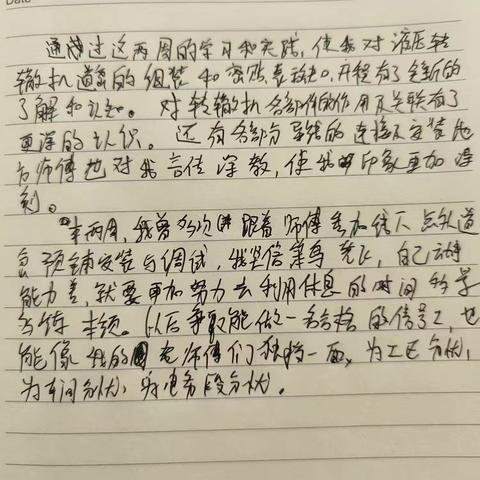 Date
通过这两周的学习和实践,使我对液压转
辙机道岔的组装和密贴表示缺口,开程有了全新的
了解和认知。对转辙机各部件的作用及关联有了
更深的认识。还有各部分导线的连接及安装
师傅也对我言传深教,使我印象更加深
刻。
本两周,我曾多次跟着师傅参加线下
预铺安装与调试,我坚信菜鸟先飞,自己动手
能力差,就要更加努力去利用休息的时间多学
多练本领。以后争取能做一名合格的信号工,也
能像我的老师傅们独挡一面,为工区分忧,
为车间分忧,为电务段分忧。